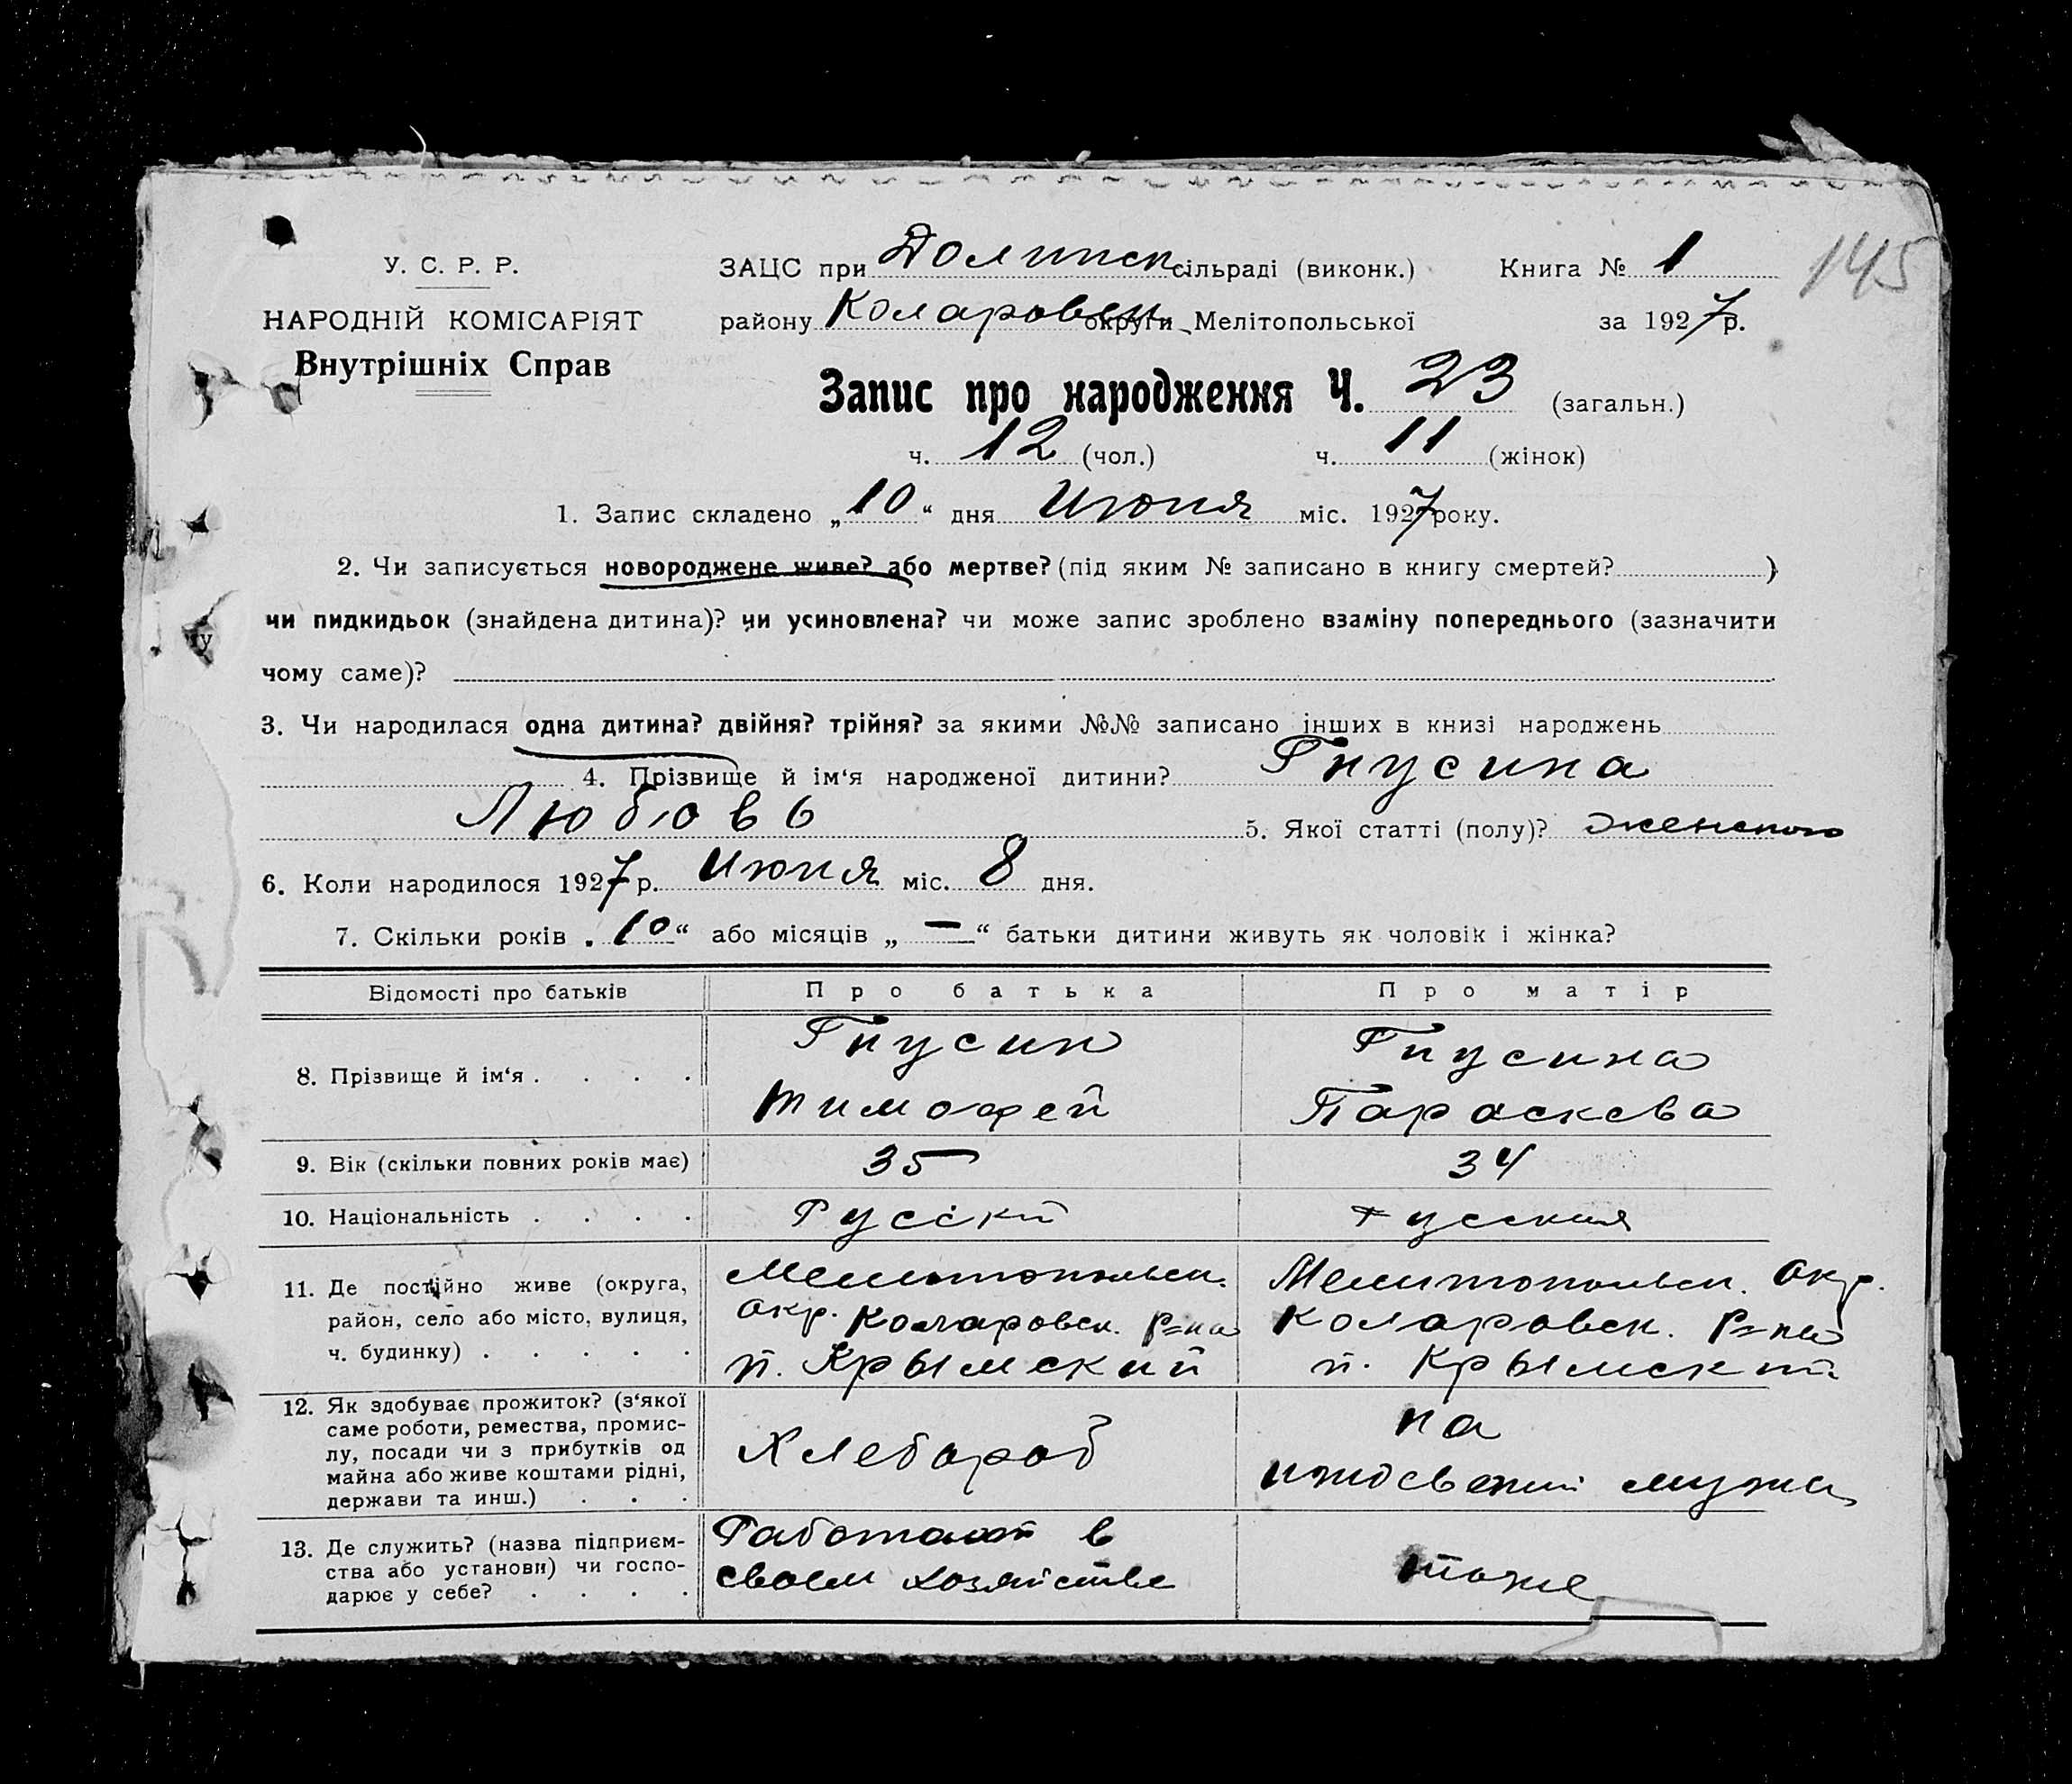 145
У. С. Р. Р.
НАРОДНІЙ КОМІСАРІЯТ
Внутрішніх Справ
ЗАЦС при Долинск. сільраді (виконк.) Книга № 1
району Коларовск. округи Мелітопольської за 1927 р.
Запис про народження Ч. 23 (загальн.)
ч. 12 (чол.) ч. 11 (жінок)
1. Запис складено „10“ дня Июня міс. 1927 року.
2. Чи записується новороджене живе? або мертве? (під яким № записано в книгу смертей? )
чи пидкидьок (знайдена дитина)? чи усиновлена? чи може запис зроблено взаміну попереднього (зазначити
чому саме)?
3. Чи народилася одна дитина? двійня? трійня? за якими №№ записано інших в книзі народжень
4. Прізвище й ім‘я народженої дитини? Гнусина
Любовь 5. Якої статті (полу)? женского
6. Коли народилося 1927 р. Июня міс. 8 дня.
7. Скільки років „10“ або місяців „—“ батьки дитини живуть як чоловік і жінка?
Відомості про батьків Про батька Про матір
8. Прізвище й ім‘я . . . .
Гнусин
Тимофей
Гнусина
Параскева
9. Вік (скільки повних років має) 35 34
10. Національність . . . . Русскй русския
11. Де постійно живе (округа,
район, село або місто, вулиця,
ч. будинку) . . . . .
Мелитопольск.
окр. Коларовск. Р=на
п. Крымский
Мелитопольск. окр.
Коларовск. Р=на
п. Крымский
12. Як здобуває прожиток? (з‘якої
саме роботи, ремества, промис-
лу, посади чи з прибутків од
майна або живе коштами рідні,
держави та инш.) . . .
Хлебороб
на
иждевении мужа
13. Де служить? (назва підприєм-
ства або установи) чи госпо-
дарює у себе? . . . .
Работает в
своем хозяйстве
тоже